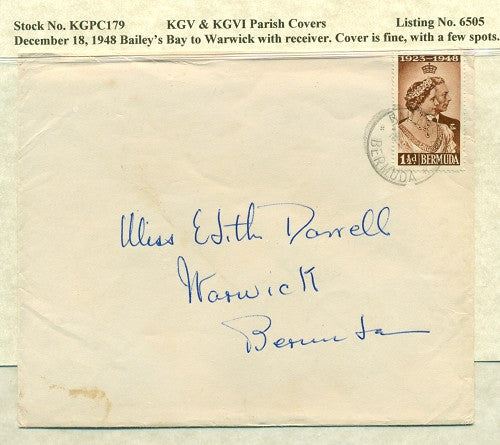 Stock No. KGPC179 KGV & KGVI Parish Covers Listing No. 6505
December 18, 1948 Bailey's Bay to Warwick with receiver. Cover is fine, with a few spots.
1923-1948
1½d BERMUDA
BERMUDA
Miss Edith Darrell
Warwick
Bermuda